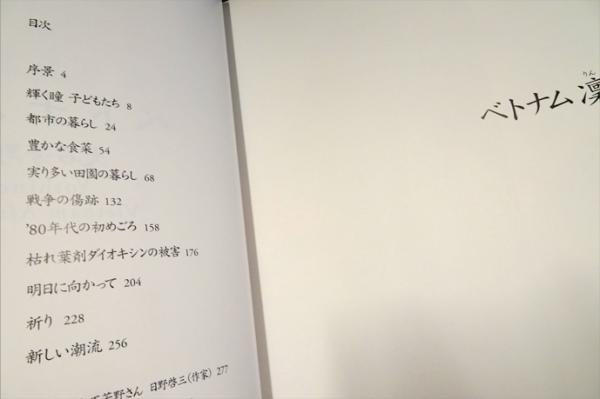 目次
序景 4
輝く瞳 子どもたち 8
都市の暮らし 24
豊かな食菜 54
実り多い田園の暮らし 68
戦争の傷跡 132
'80年代の初めごろ 158
枯れ葉剤ダイオキシンの被害 176
明日に向かって 204
祈り 228
新しい潮流 256
野さん 日野啓三(作家) 277
りん
ベトナム 凜